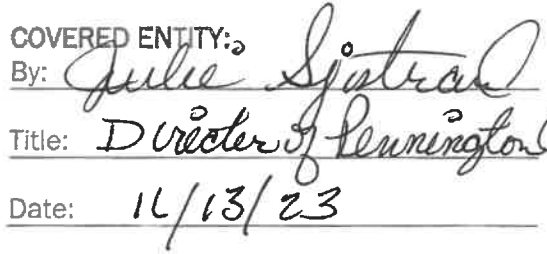 COVERED ENTITY:
By: Julie Sjostrand
Title: Director of Pennington
Date: 11/13/23